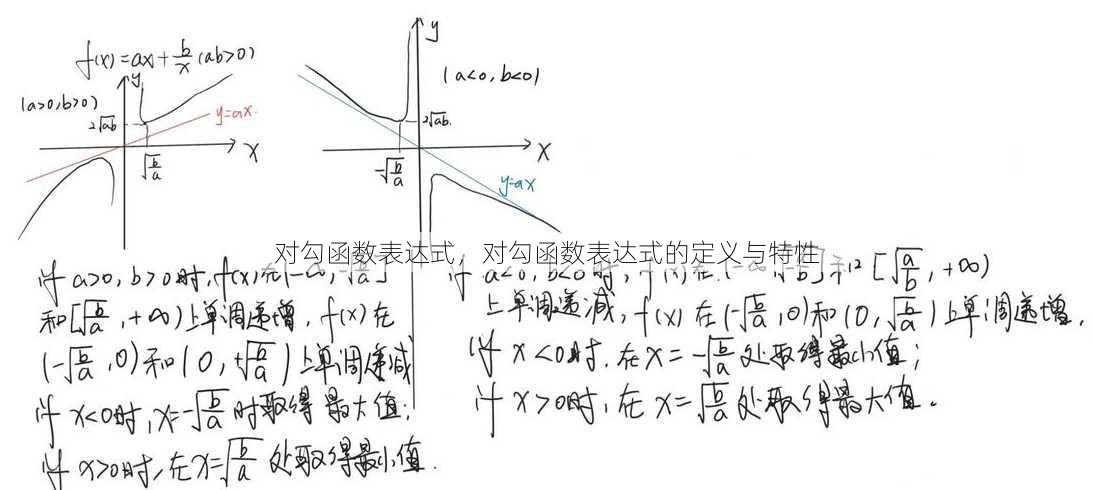 f(x)=ax+b/x (ab>0)
(a>0,b>0)
y
2√ab
y=ax.
x
√(b/a)
y
(a<0,b<0)
2√ab.
x
-√(b/a)
y=ax
对勾函数表达式，对勾函数表达式的定义与特性
if a>0,b>0时,f(x)在(-∞,-√(b/a)]
和[√(b/a),+∞)上单调递增,f(x)在
(-√(b/a),0)和(0,+√(b/a))上单调递减
if x<0时,x=-√(b/a)时取得最大值;
if x>0时,在x=√(b/a)处取得最小值.
if a<0,b<0时,f(x)在(-∞ ]和[√(a/b),+∞)
上单调递减,f(x)在(-√(b/a),0)和(0,√(b/a))上单调递增.
if x<0时.在x=-√(b/a)处取得最小值;
if x>0时,在x=√(b/a)处取得最大值.